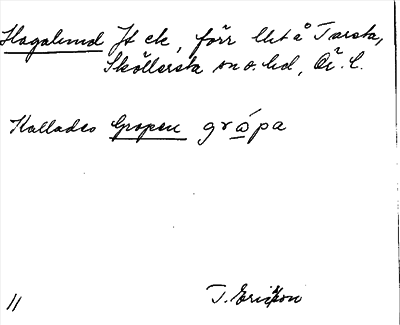 Hagalund Jt ek, förr lht å Tarsta,
Sköllersta sn o. hd, Ör. l.
Kallades Gropen gròpa
11
T. Ericsson